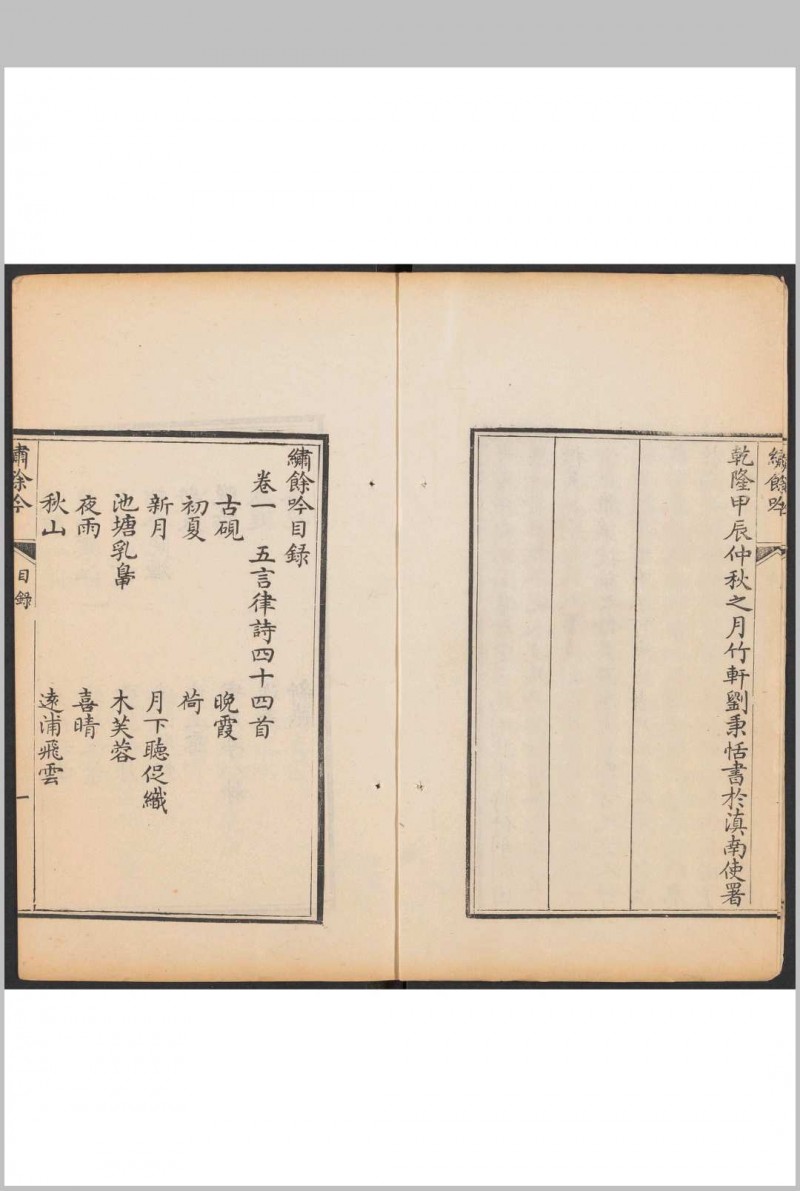 繡餘吟
乾隆甲辰仲秋之月竹軒劉秉恬書於滇南使署
繡餘吟目録
卷一　五言律詩四十四首
古硯　晚霞
初夏　荷
新月　月下聽促織
池塘乳鳧　木芙蓉
夜雨　喜晴
秋山　遠浦飛雲
繡餘吟　目録　一